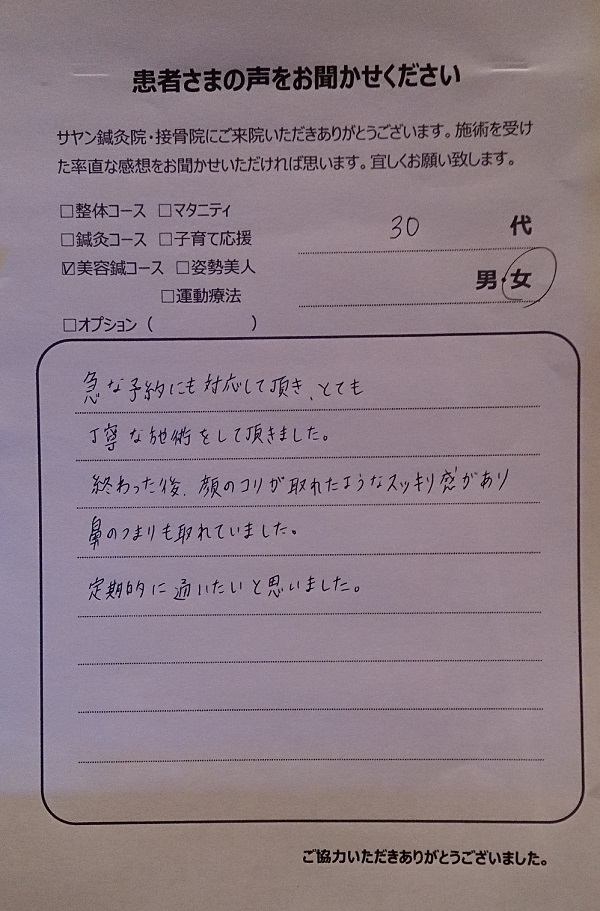 患者さまの声をお聞かせください
サヤン鍼灸院・接骨院にご来院いただきありがとうございます。施術を受け
た率直な感想をお聞かせいただければ思います。宜しくお願い致します。
□整体コース □マタニティ
□鍼灸コース □子育て応援
☑美容鍼コース □姿勢美人
□運動療法
□オプション（ ）
30 代
男・女
急な予約にも対応して頂き、とても
丁寧な施術をして頂きました。
終わった後、顔のコリが取れたようなスッキリ感があり
鼻のつまりも取れていました。
定期的に通いたいと思いました。
ご協力いただきありがとうございました。